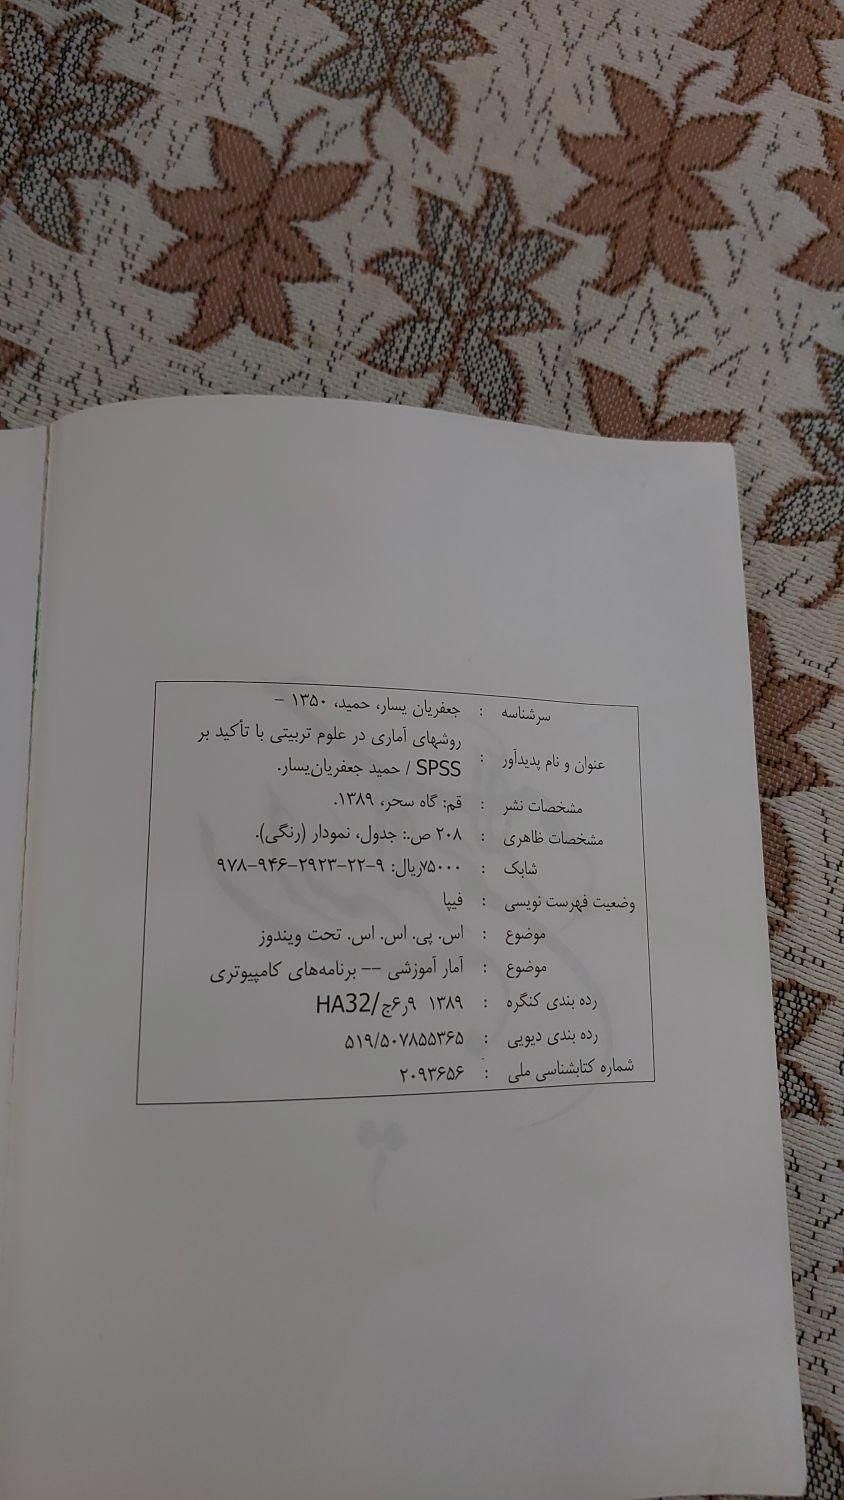 سرشناسه : جعفریان یسار، حمید، ۱۳۵۰ –
عنوان و نام پدیدآور : روشهای آماری در علوم تربیتی با تأکید بر
SPSS / حمید جعفریان‌یسار.
مشخصات نشر : قم: گاه سحر، ۱۳۸۹.
مشخصات ظاهری : ۲۰۸ ص.: جدول، نمودار (رنگی).
شابک : ۷۵۰۰۰ریال: ۹-۲۲-۲۹۲۳-۹۴۶-۹۷۸
وضعیت فهرست نویسی : فیپا
موضوع : اس. پی. اس. اس. تحت ویندوز
موضوع : آمار آموزشی -- برنامه‌های کامپیوتری
رده بندی کنگره : ۱۳۸۹ ۹ر۶ج/HA32
رده بندی دیویی : ۵۱۹/۵۰۷۸۵۵۳۶۵
شماره کتابشناسی ملی : ۲۰۹۳۶۵۶